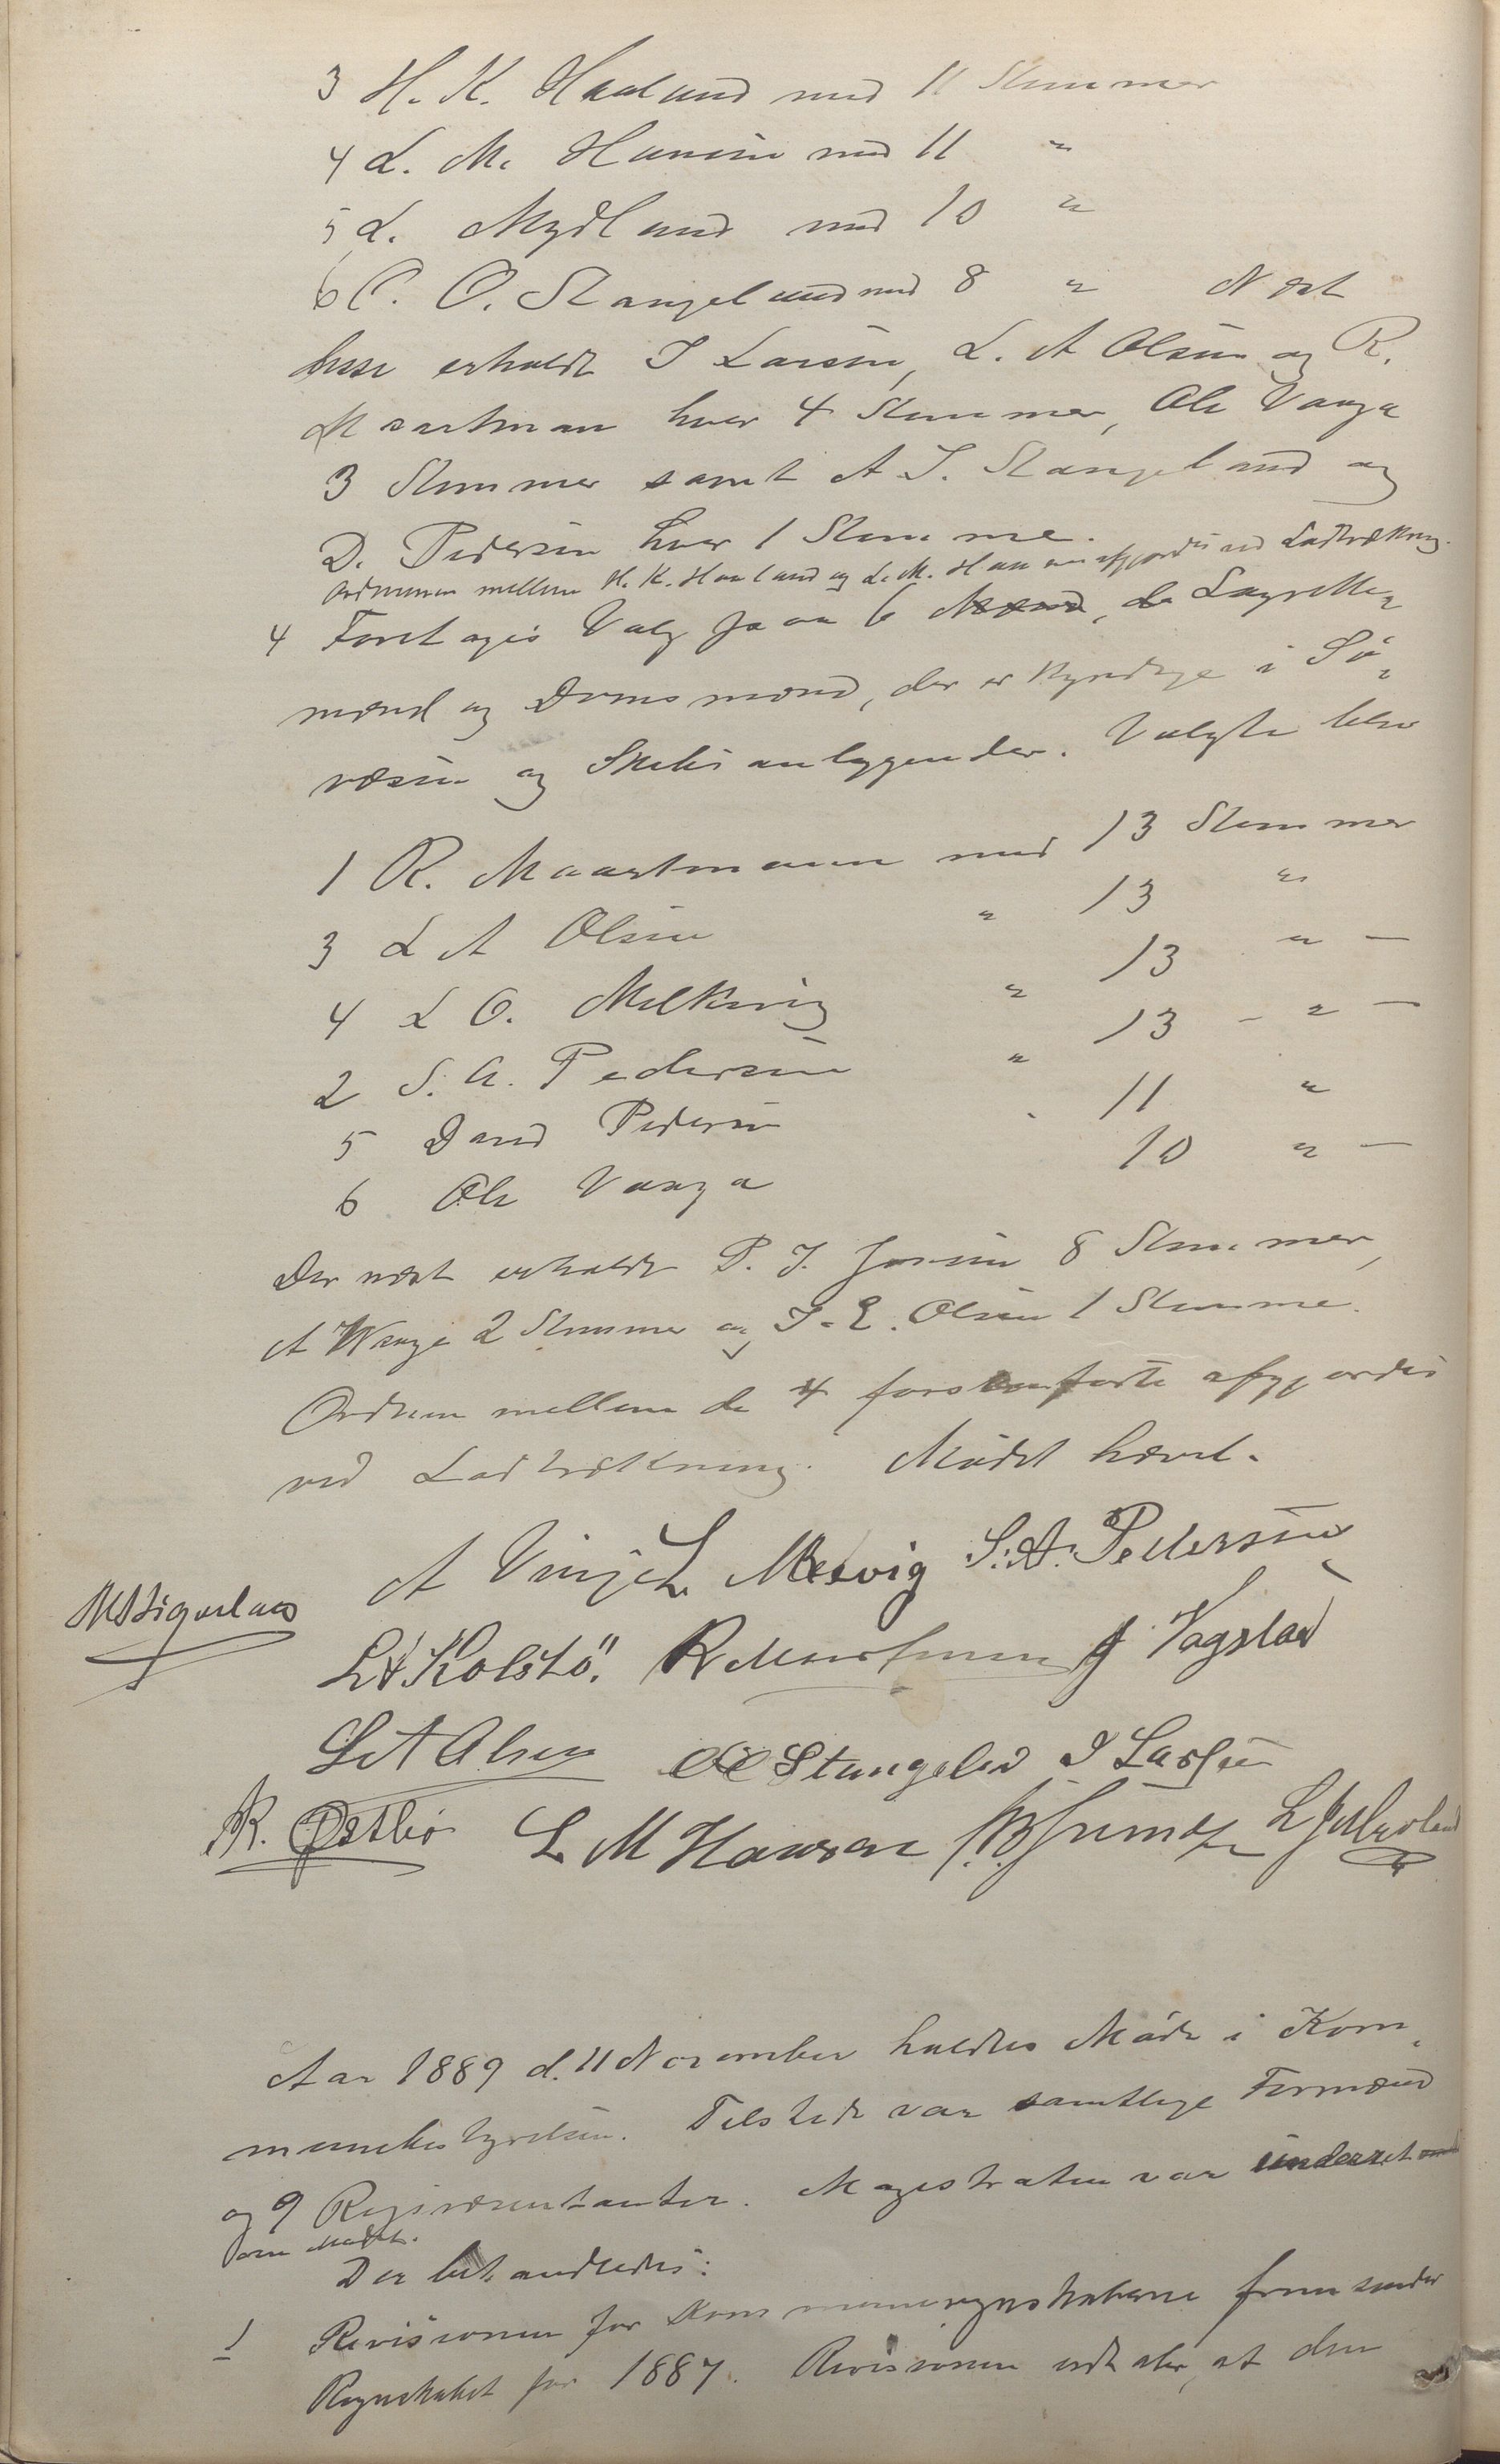 3 H. K. Haaland med 11 Stemmer
4 L. M. Hansen med 11 "
5 L. Mydland med 10 "
6 O. O. Stangeland med 8 " Næst
disse erholdt I Larsen, L. A Olsen og R.
Maartman hver 4 Stemmer, Ole Vaage
3 Stemmer samt A I. Stangeland og
D. Pedersen hver 1 Stemme.
Ordenen mellem H. K. Haaland og L. M. Hansen afgjordes ved Lodtrækning.
4 Foretages Valg paa 6 Mænd, de Lagrettes
mænd og Domsmænd, der er kyndige i Sö-
væsen og Skibsanliggender. Valgte blev
1 R. Maartmann med 13 Stemmer
3 L A Olsen " 13 "
4 L O. Melkevig " 13 " —
2 S. A. Pedersen " 13 - " —
5 David Pedersen " 11 "
6 Ole Vaaga 10 " —
Der næst erholdt P. T. Jensen 8 Stemmer,
A Waage 2 Stemmer og I. E. Olsen 1 Stemme.
Ordnen mellem de 4 første afgjordes
ved Lodtrækning. Mödet hævet.
A Vinje L. Mesvig S. A. Pedersen
L A Kolstö. R Maartmann J Vagsland
L A Olsen O O Stangeland I Larsen
R. Østbö L M Hansen
Aar 1889 d. 11 November holdtes Möde i Kom-
munebestyrelsen. Tilstede var samtlige Formænd
og 9 Repræsentanter. Magistraten var underrettet
om Mödet.
Der behandledes:
1 Revisionen for Kommuneregnskaberne fremsender
Regnskabet for 1887. Revisionen udtaler, at den